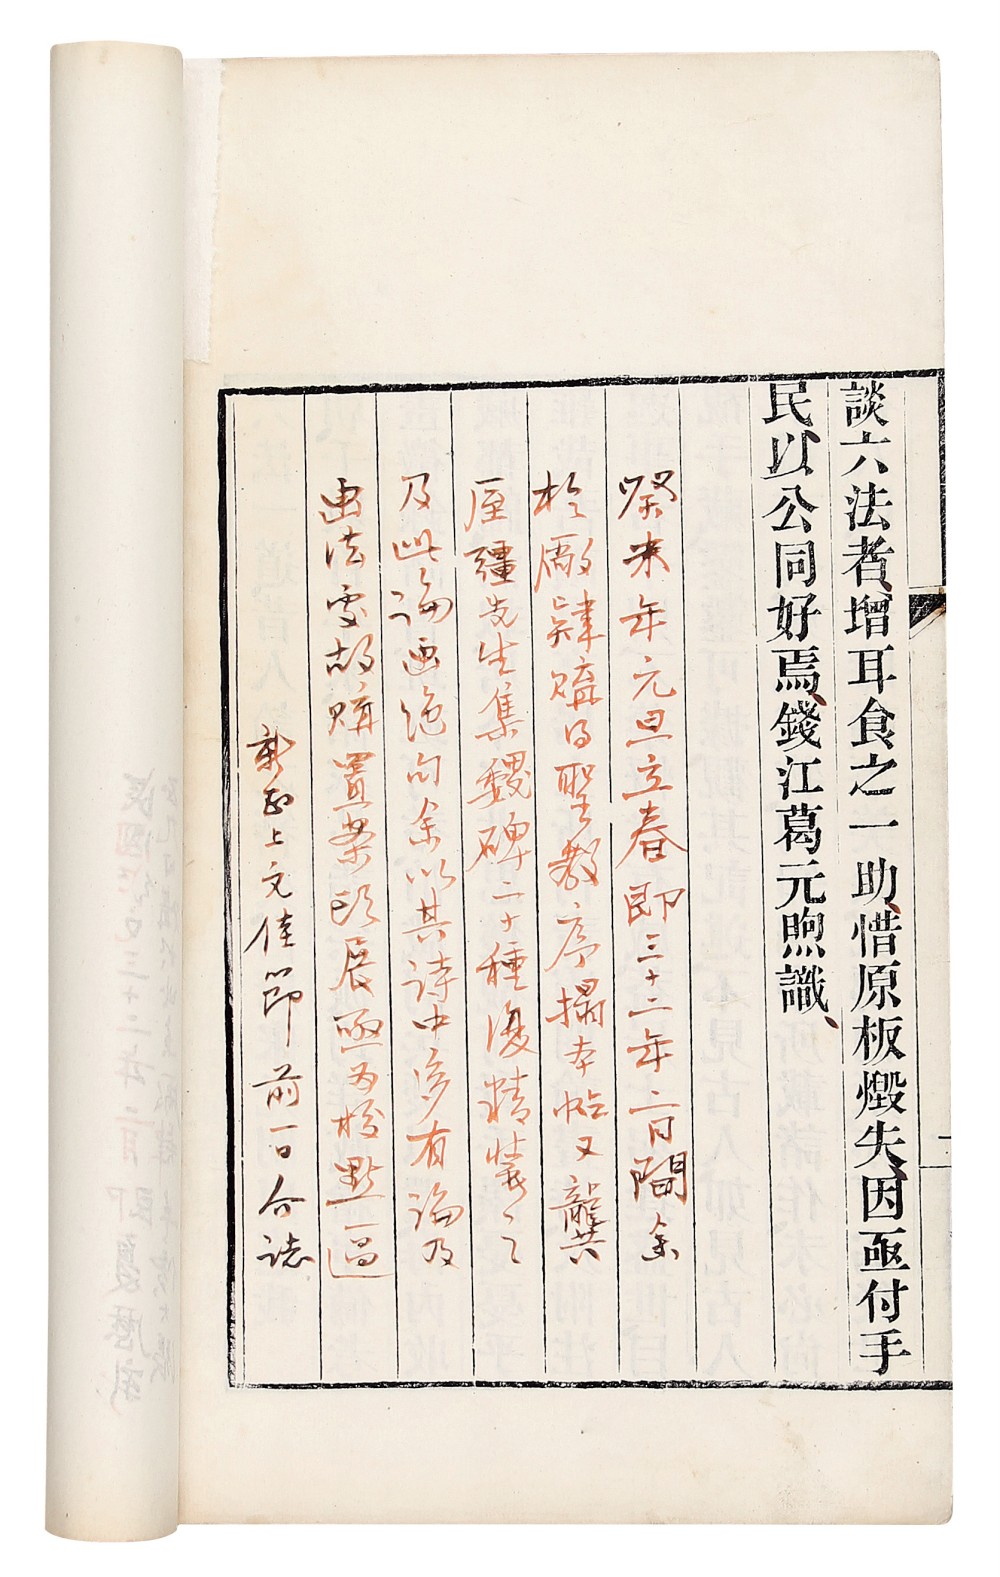 談六法者增耳食之一助惜原板燬失因亟付手
民以公同好焉錢江葛元煦識
癸未年元旦立春即三十二年二月間余
於廠肆購得聖教序搨本帖又龔
屋疆先生集魏碑二十種復精裝之
及此論画絕句余以其詩中多有論及
画法處故購置案頭展函为校點一過
新正上文佳節前一日 誌